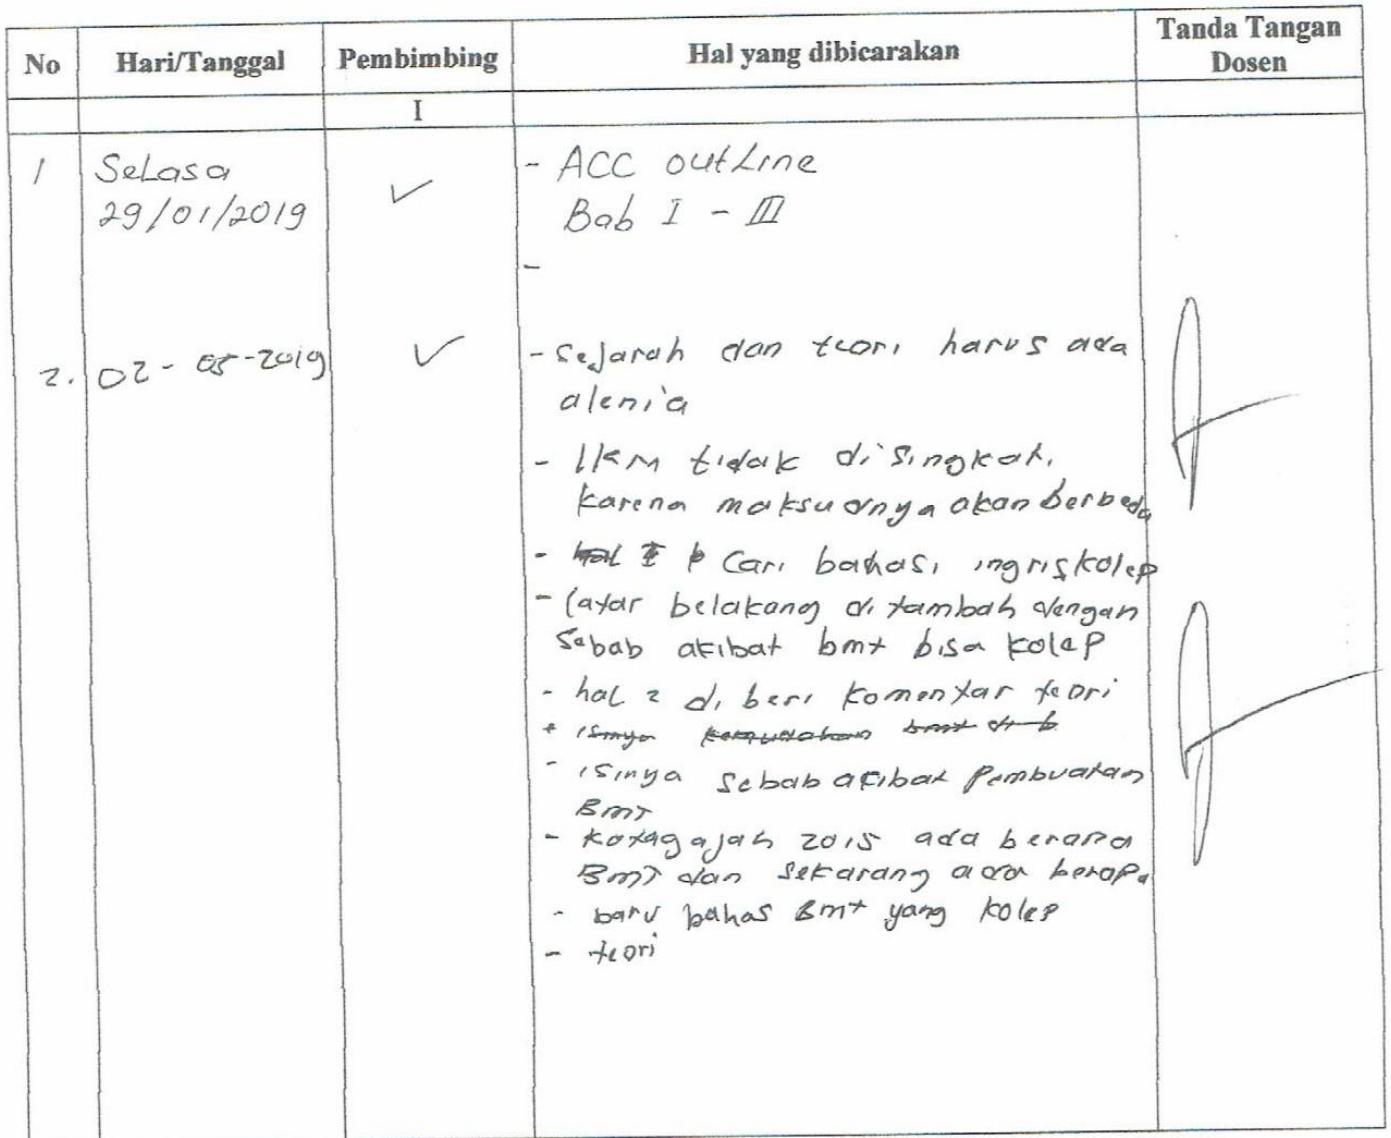 No Hari/Tanggal Pembimbing Hal yang dibicarakan Tanda Tangan Dosen
I
1 Selasa - ACC outline
29/01/2019 Bab I - III
-
2. 02-05-2019 - Sejarah dan teori harus ada
alenia
- lkm tidak disingkat,
karena maksudnya akan berbeda
- Cari bahasi ingris kolep
- latar belakang ditambah dengan
sebab akibat bmt bisa kolep
- hal 2 di beri komentar teori
isinya
- isinya sebab akibat pembuatan
BMT
- kotagajah 2015 ada berapa
BMT dan sekarang ada berapa
- baru bahas Bmt yang kolep
- teori